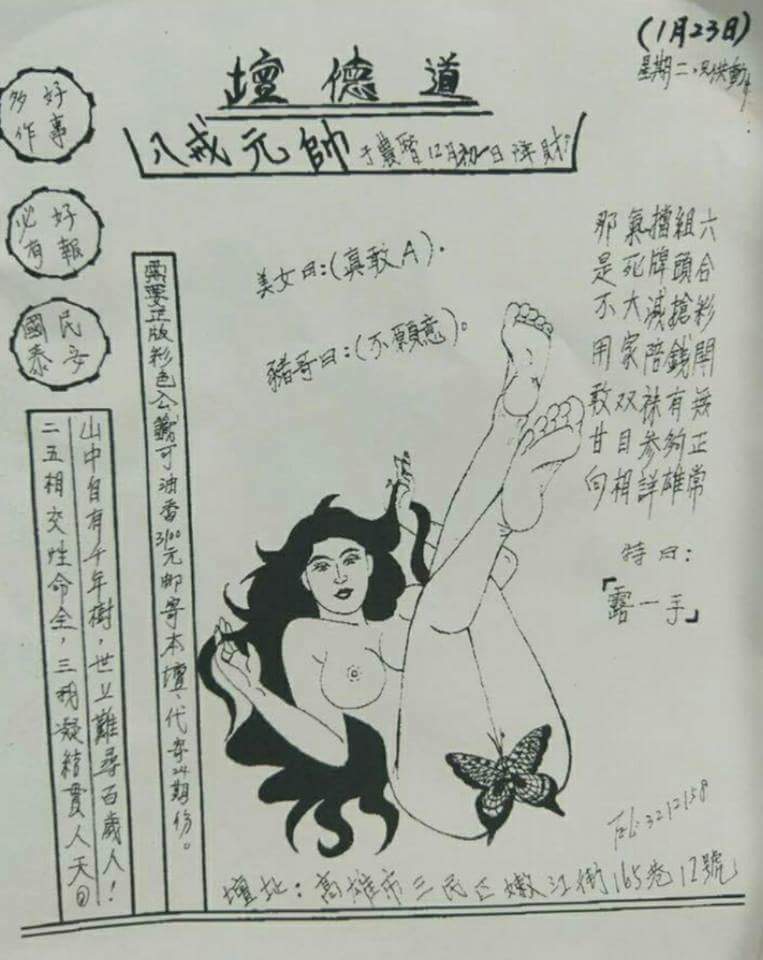 (1月23日)
星期二。只供動
道德壇
八戒元帥于農曆12月初一日降財。
好事多作
好報必有
民安國泰
美女曰:(真敢A)。
豬哥曰:(不願意)。
六合彩開無正常
組頭搶錢有夠雄
擋牌減陪袜參詳
氣死大家双目相
那是不用敢甘向
特曰:
「露一手」
需要正版彩色公籤可油香3100元郵寄本壇、代寄24期份。
山中自有千年樹,世上難尋百歲人!
二五相交性命全,三我凝結貫人天
Tel:3212158
壇地:高雄市三民区嫩江街165巷12號